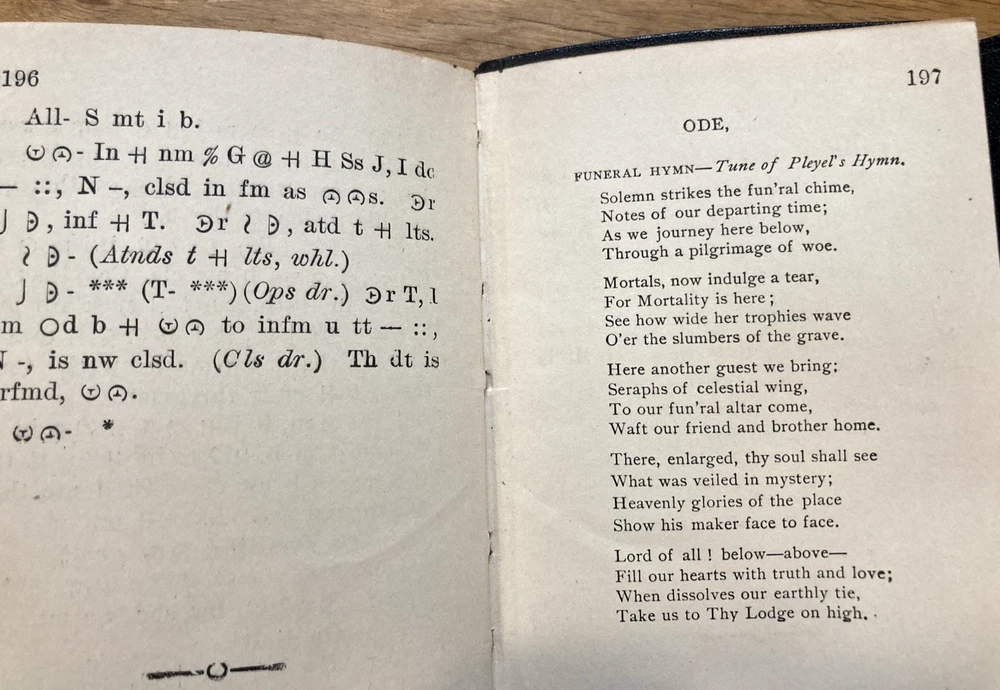 196
All- S mt i b.
In nm % G @ H Ss J, I dc
— ::, N –, clsd in fm as s.
, inf T. r , atd t lts.
- (Atnds t lts, whl.)
- *** (T- ***) (Ops dr.) r T, l
m d b to infm u tt — ::,
-, is nw clsd. (Cls dr.) Th dt is
rfmd,
- *
197
ODE,
FUNERAL HYMN—Tune of Pleyel's Hymn.
Solemn strikes the fun'ral chime,
Notes of our departing time;
As we journey here below,
Through a pilgrimage of woe.
Mortals, now indulge a tear,
For Mortality is here;
See how wide her trophies wave
O'er the slumbers of the grave.
Here another guest we bring;
Seraphs of celestial wing,
To our fun'ral altar come,
Waft our friend and brother home.
There, enlarged, thy soul shall see
What was veiled in mystery;
Heavenly glories of the place
Show his maker face to face.
Lord of all! below—above—
Fill our hearts with truth and love;
When dissolves our earthly tie,
Take us to Thy Lodge on high.